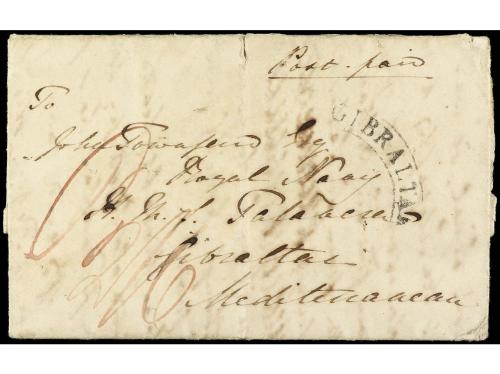 Post-paid
GIBRALTA
To
John Townsend Esq
Royal Navy
H. M. S.
Gibraltar
Mediterranean